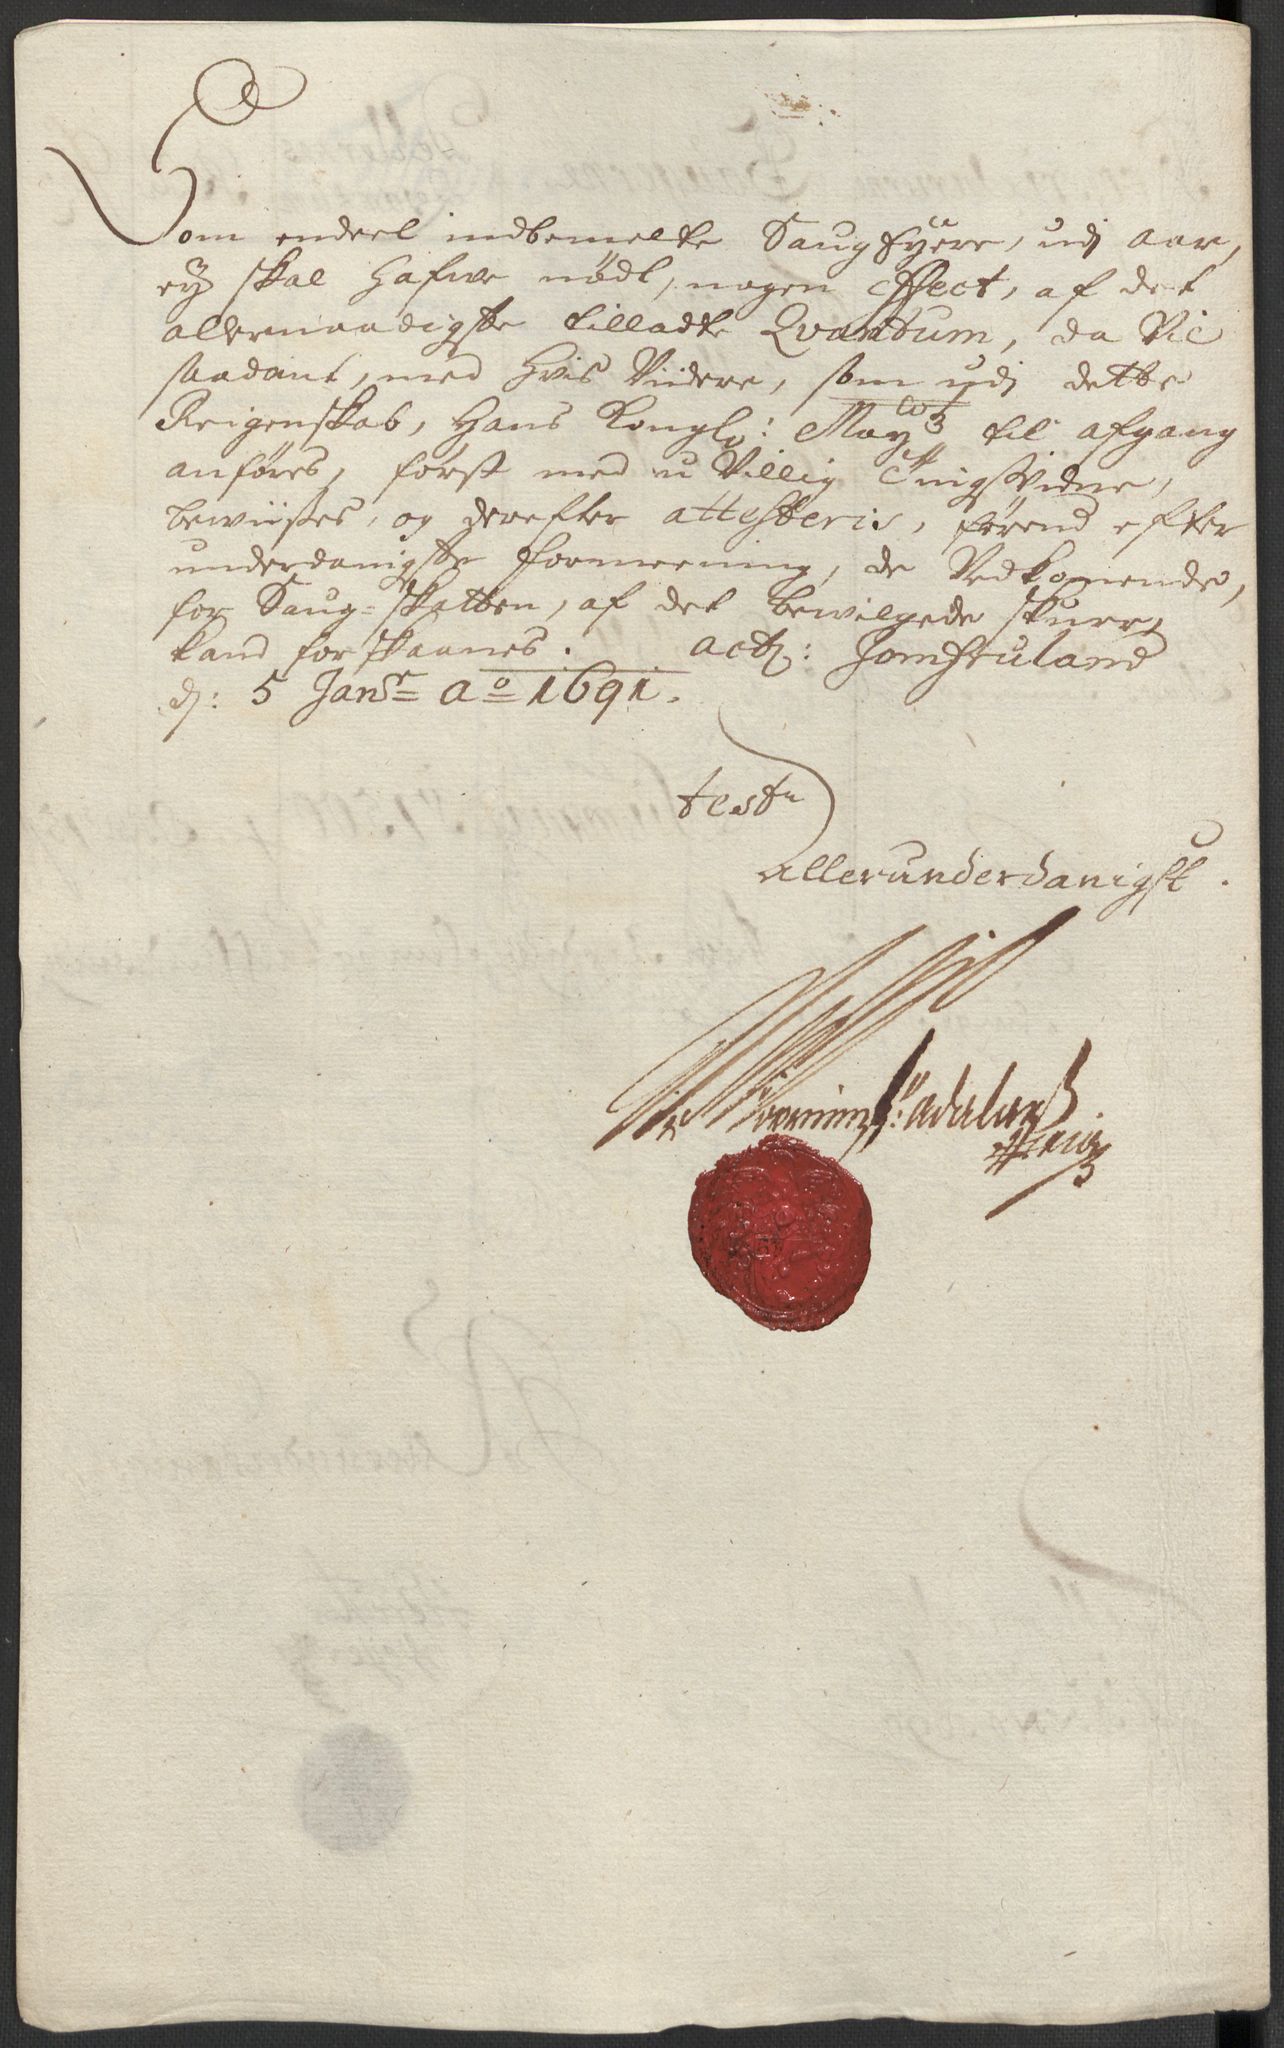 Som endeel indbemelte Saug Eyere, udj aar,
eÿ skal hafwe nødt, nogen Effect, af det
allernaadigste tilladte Qvantum, da vil
saadant, med hvis Viidere, som udj dette
Reigenskab, Hans Kongl: Maÿtz til afgang
anføres, først med u Villig Tingsvidne,
bewiises, og derefter attesteris, førend efter
underdanigste formeening, de Vedkomende,
for Saug-skatten, af det bewilgede skurr,
kand forskaanes. act: Jomfruland
dj: 5 Janr Ao 1691.
test
allerunderdanigst.